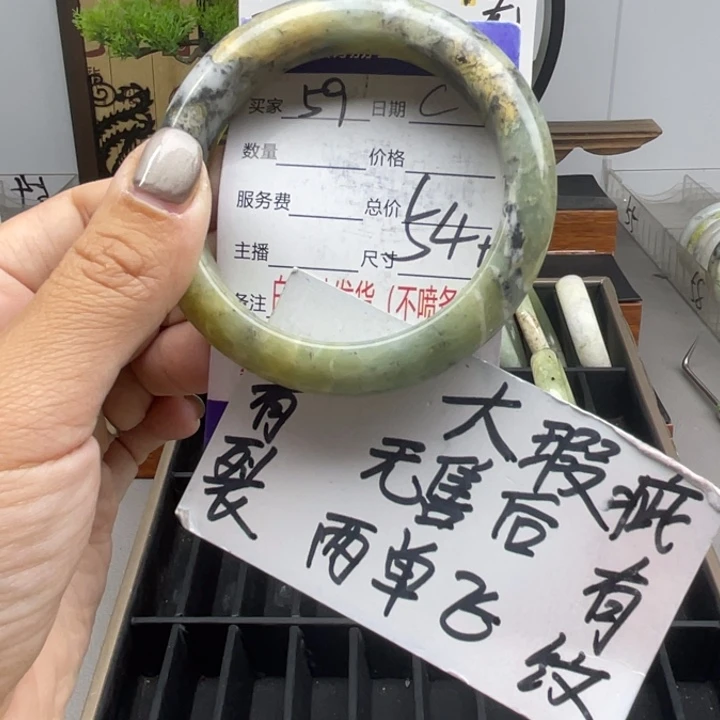 买家 59 日期 C
数量 价格
服务费 总价
主播 尺寸 54+
备注
发货（不喷务
有裂
大瑕疵
无售后
有纹
两单飞